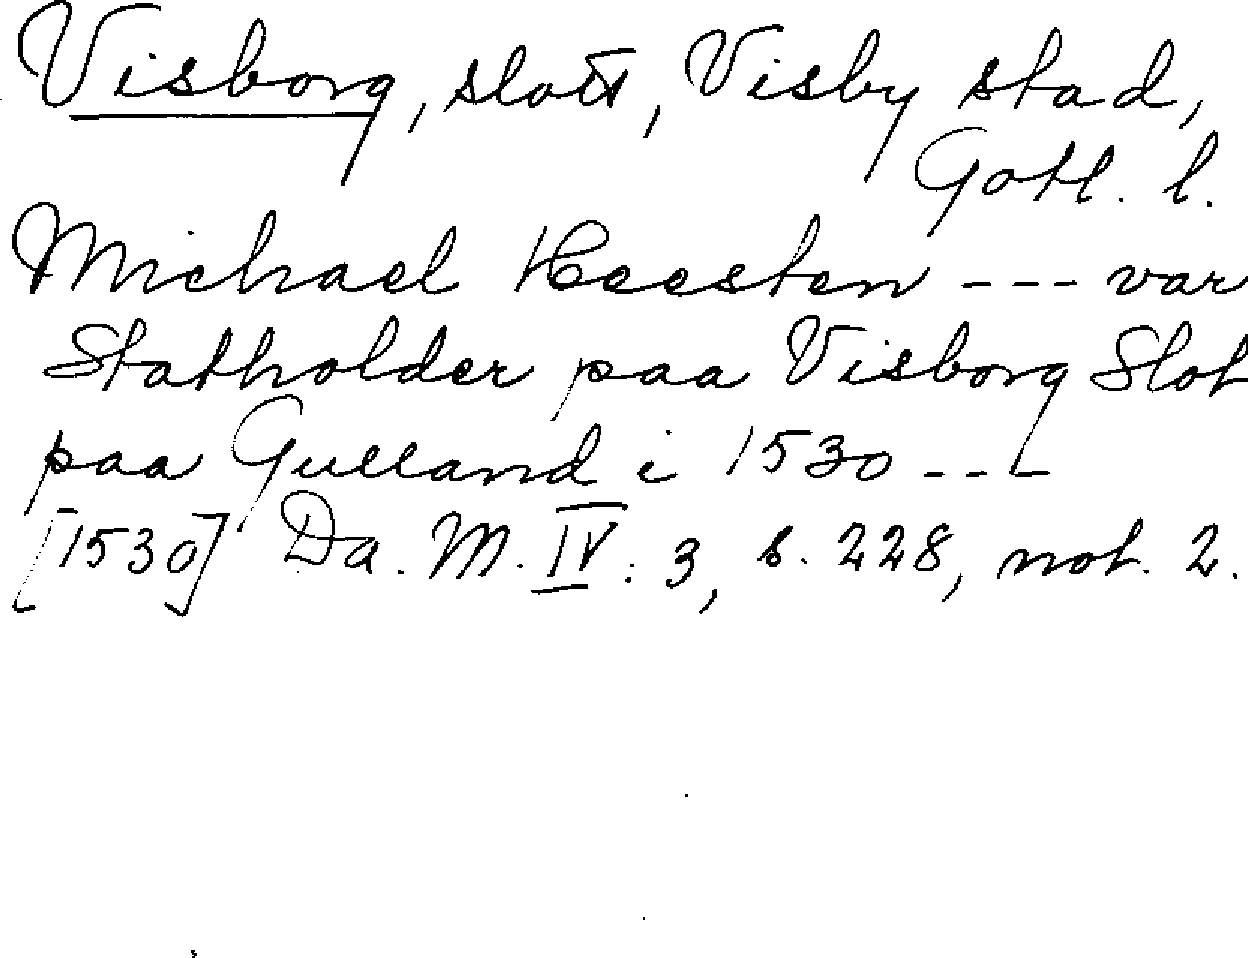 Visborg, slott, Visby stad,
Gotl. l.
Michael Heesten --- var
Statholder paa Visborg Slot
paa Gulland i 1530 ---
[1530] Da. M. IV. 3, s. 228, not. 2.